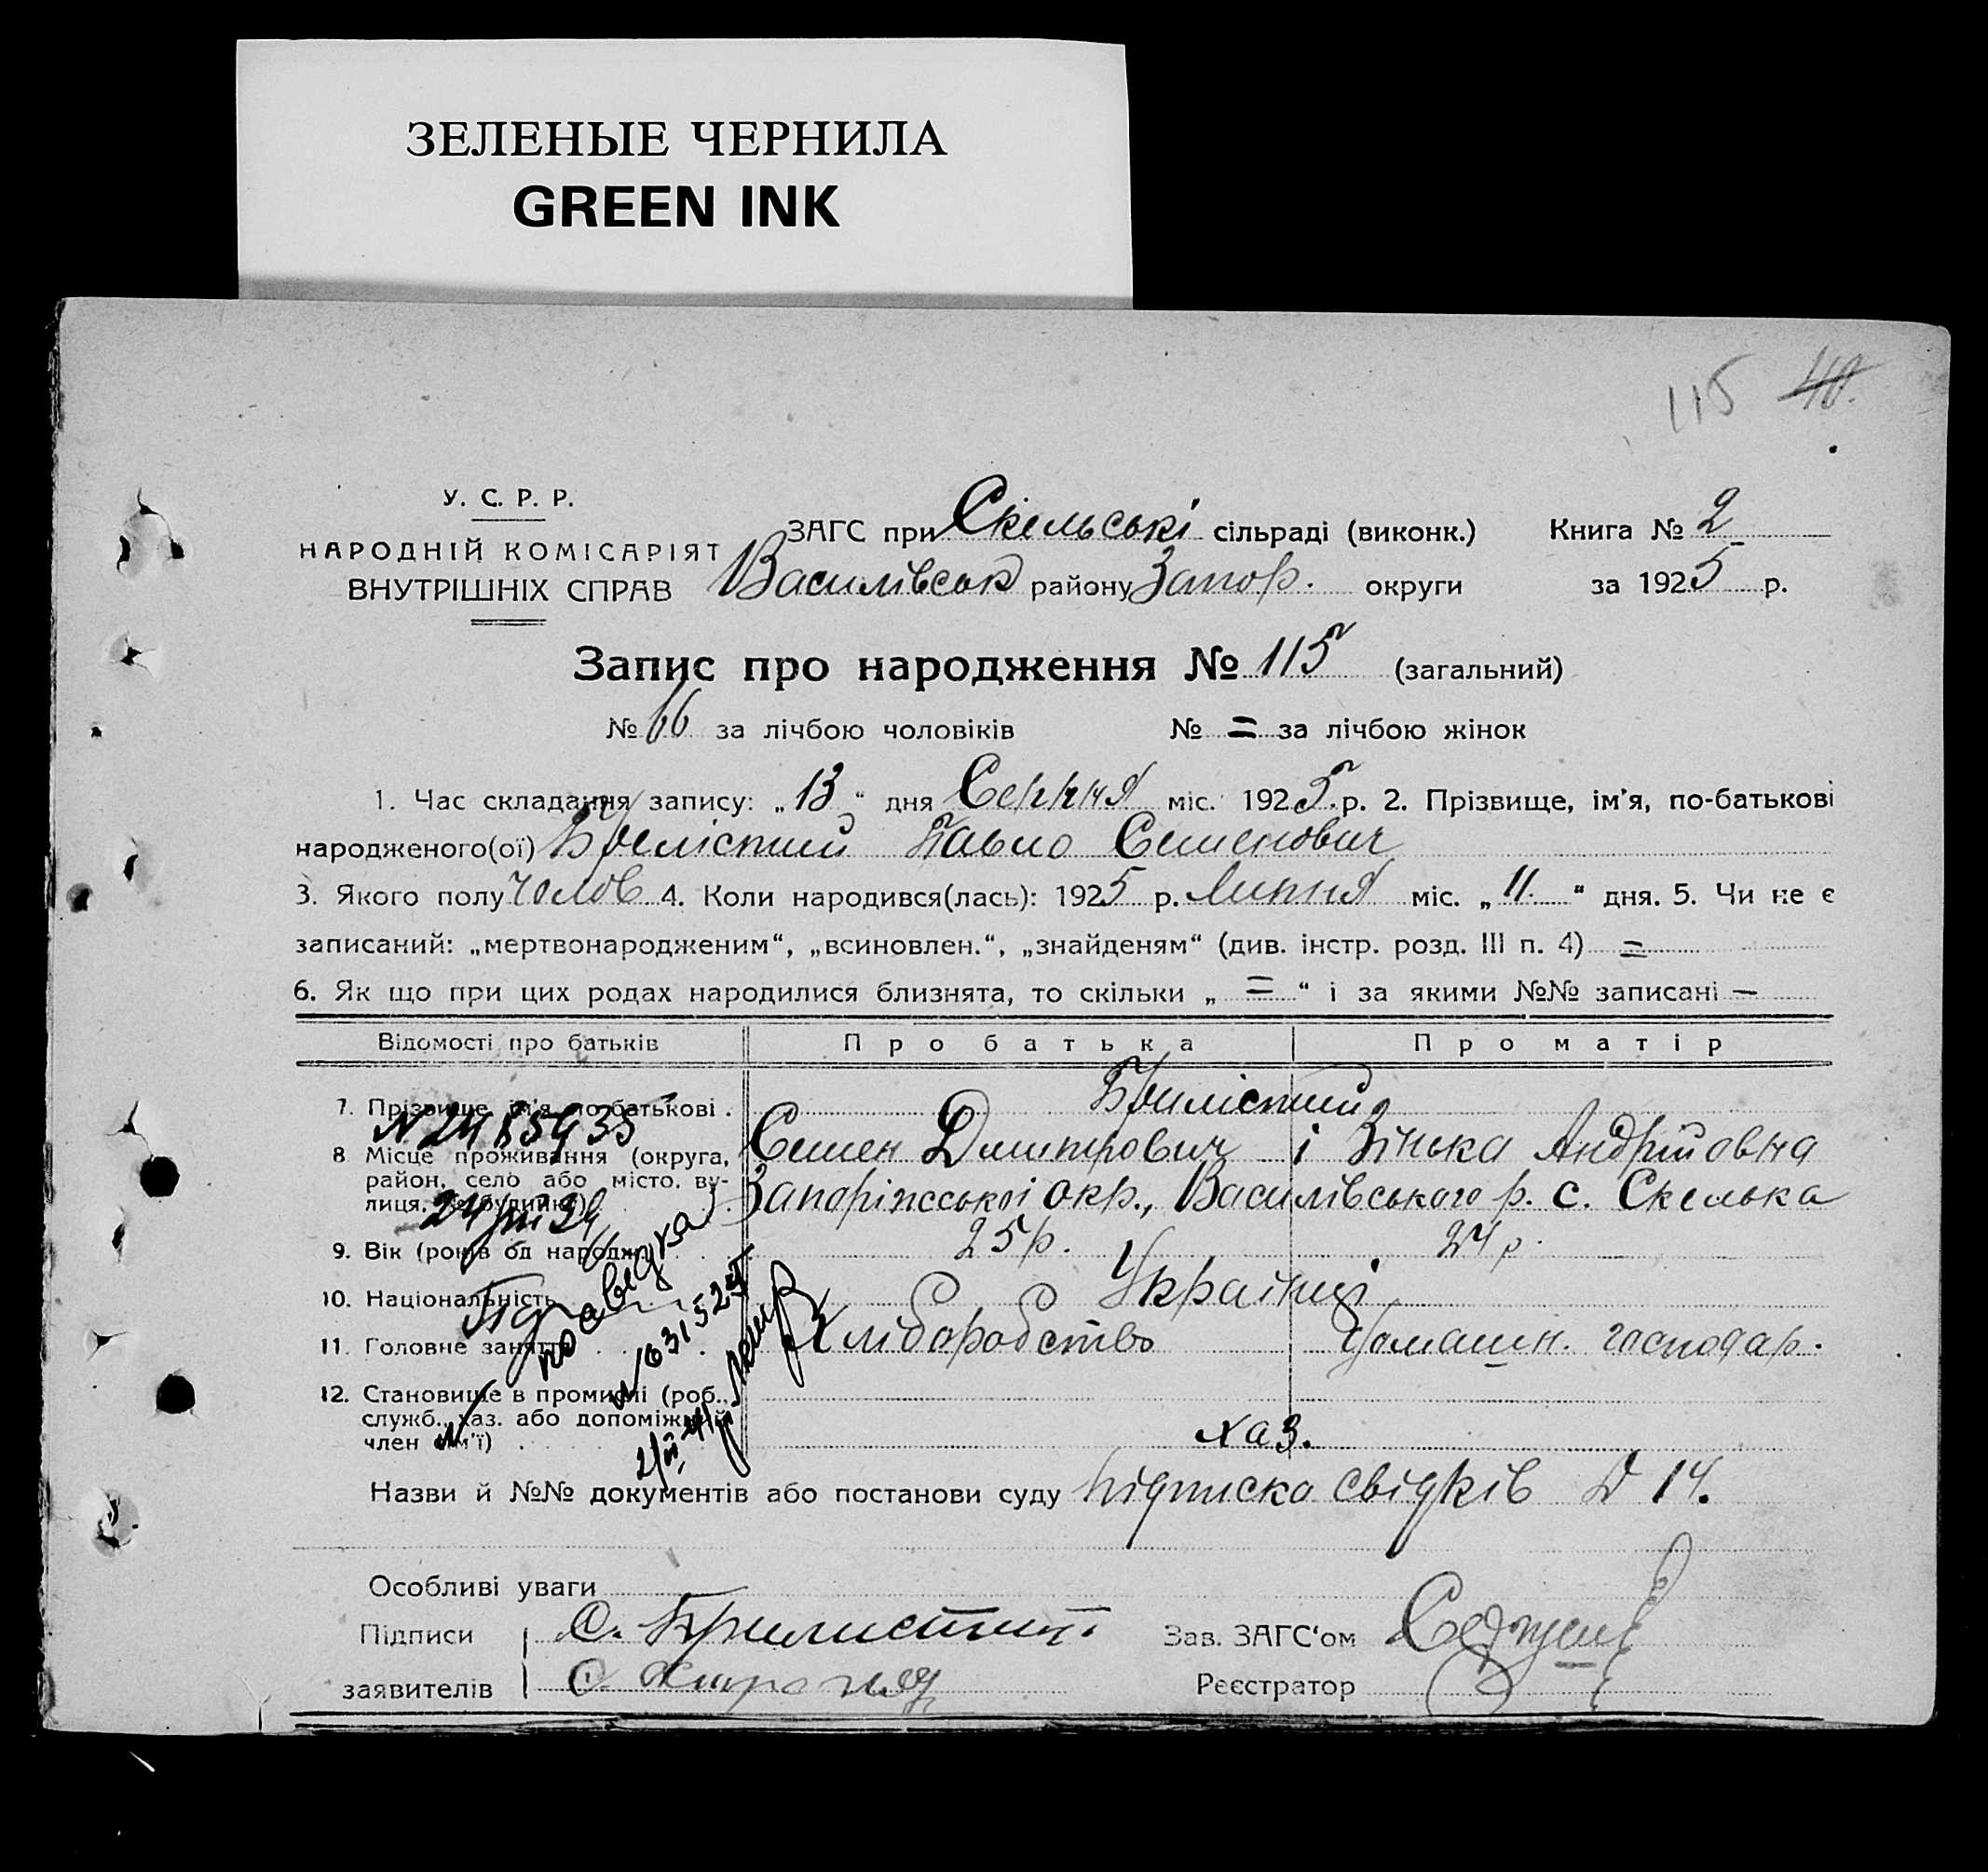 ЗЕЛЕНЫЕ ЧЕРНИЛА
GREEN INK
115 40.
У. С. Р. Р.
НАРОДНІЙ КОМІСАРІЯТ
ВНУТРІШНІХ СПРАВ
ЗАГС при Скельські сільраді (виконк.) Книга № 2
Василівськ району Запор. округи за 1925 р.
Запис про народження № 115 (загальний)
№ 66 за лічбою чоловіків № = за лічбою жінок
1. Час складання запису: „13“ дня Серпня міс. 1925 р. 2. Прізвище, ім’я, по-батькові
народженого(ої) Павло Семенович
3. Якого полу чолов 4. Коли народився(лась): 1925 р. Липня міс. „11.“ дня. 5. Чи не є
записаний: „мертвонародженим“, „всиновлен.“, „знайденям“ (див. інстр. розд. III п. 4) =
6. Як що при цих родах народилися близнята, то скільки „ = “ і за якими №№ записані —
Відомості про батьків Про батька Про матір
7. Прізвище, ім’я, по-батькові .
Семен Дмитрович і Зінька Андрійовна
8 Місце проживання (округа,
район, село або місто, ву-
лиця, № будинку)
Запоріжської окр., Василівського р. с. Скелька
9. Вік (років од народж. 25 р. 24 р.
10. Національність Українці
11. Головне заняття Хліборобство Домашн. господар.
12. Становище в промислі (роб.,
служб., хаз. або допоміжний
член сім’ї) хаз.
Назви й №№ документів або постанови суду підписка свідків № 14.
Особливі уваги
Підписи
Зав. ЗАГС‘ом
заявителів
Реєстратор